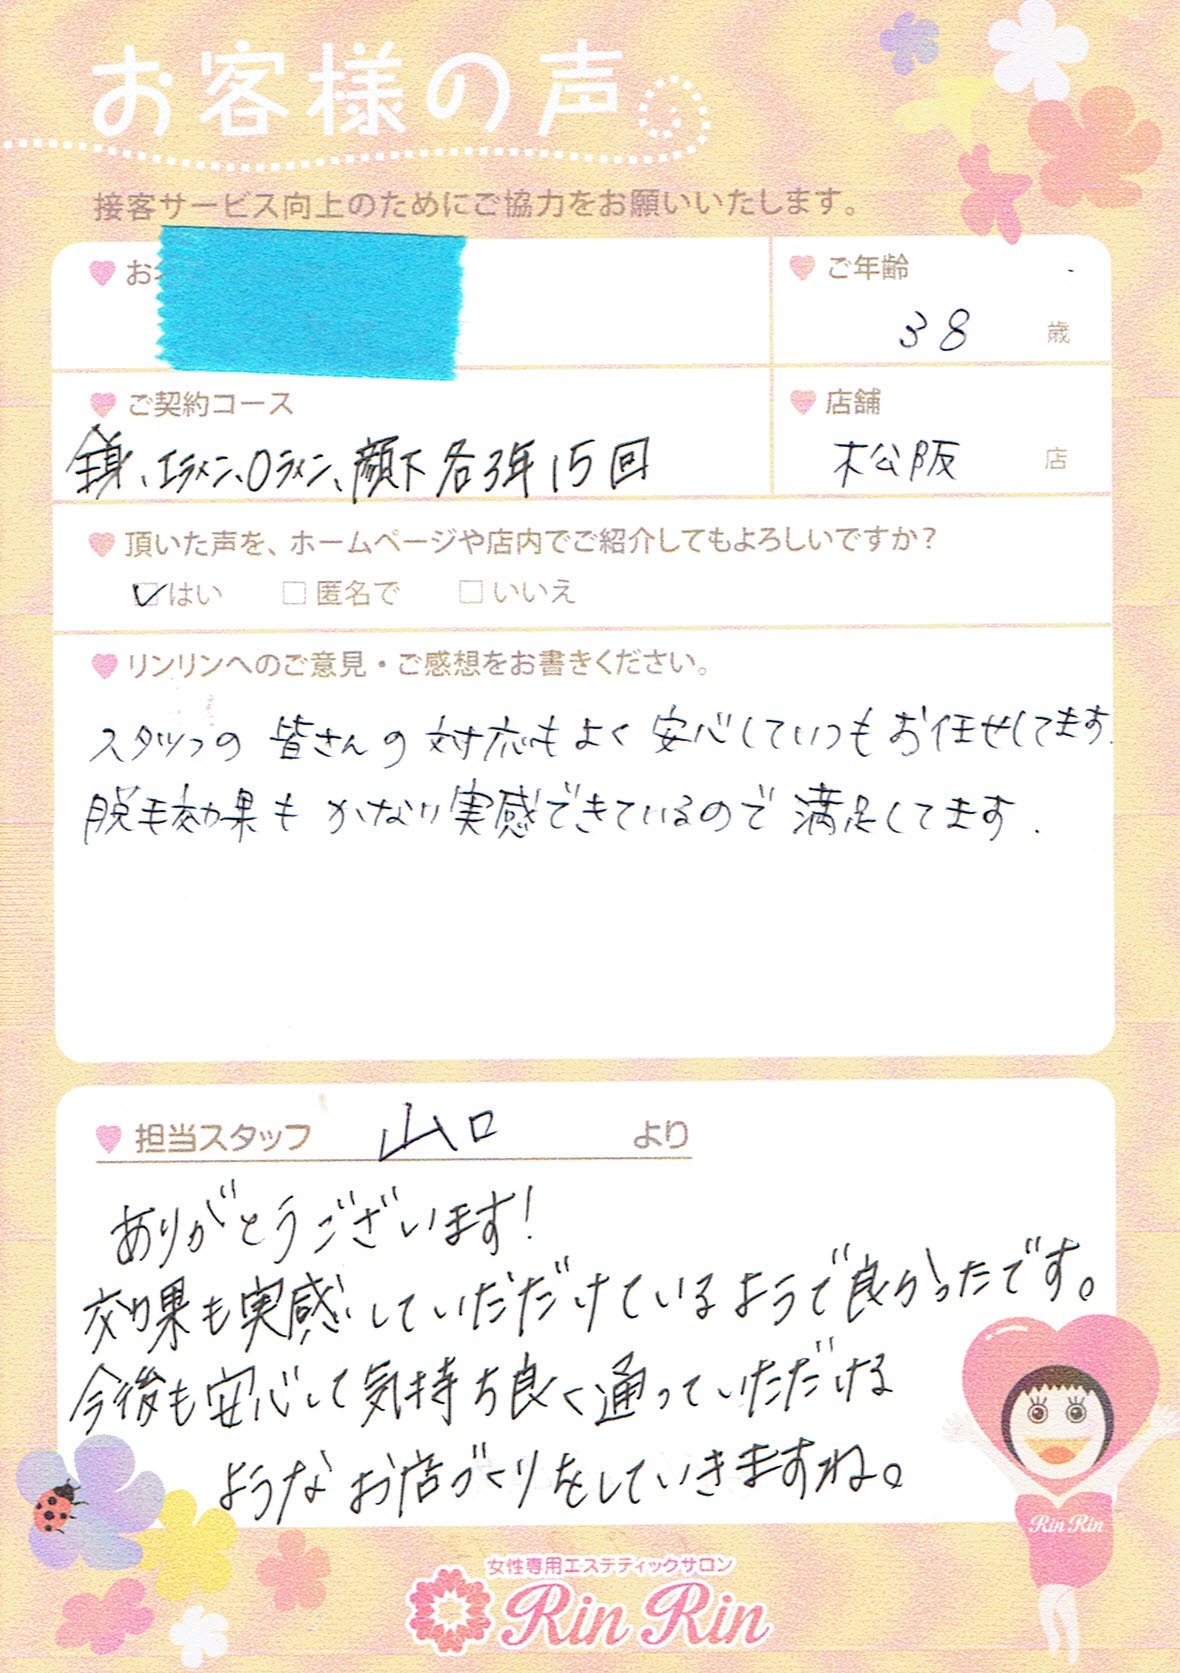 お客様の声。
接客サービス向上のためにご協力をお願いいたします。
お
ご年齢
38 歳
ご契約コース
、エライン、Oライン、顔下各3年15回
店舗
松阪 店
頂いた声を、ホームページや店内でご紹介してもよろしいですか？
はい 匿名で いいえ
リンリンへのご意見・ご感想をお書きください。
スタッフの皆さんの対応もよく安心していつもお任せしてます.
脱毛効果もかなり実感できているので満足してます.
担当スタッフ 山口 より
ありがとうございます!
効果も実感していただけているようで良かったです。
今後も安心して気持ち良く通っていただける
ようなお店づくりをしていきますね。
Rin Rin
女性専用エステティックサロン
Rin Rin